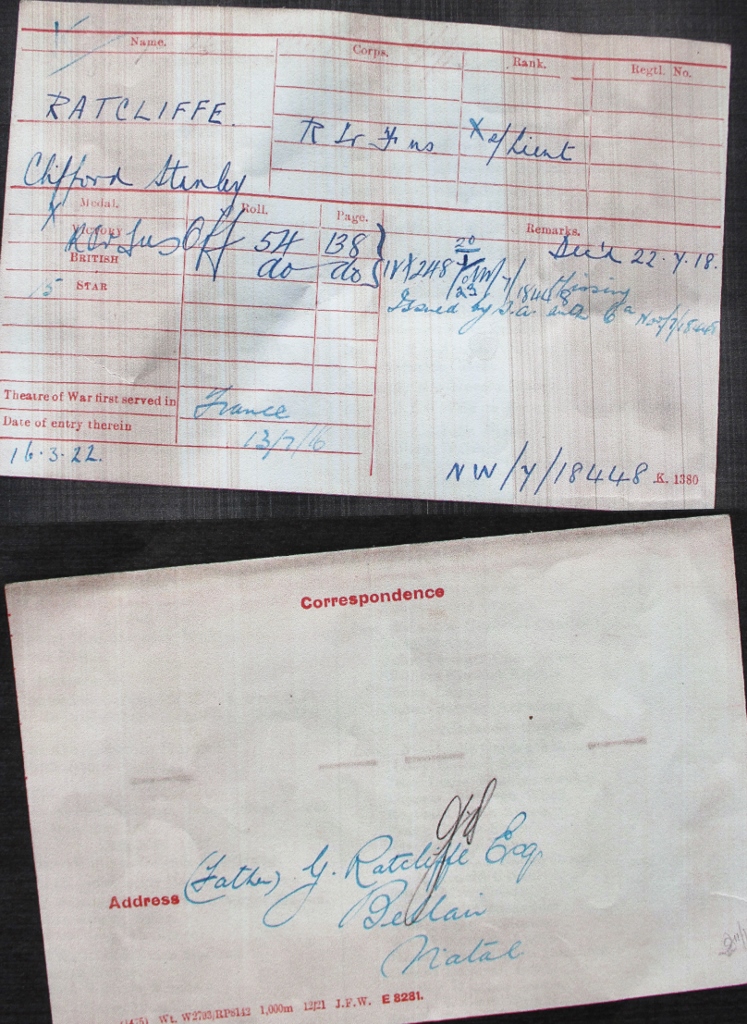 Name. Corps. Rank. Regtl. No.
RATCLIFFE.
R Ir Fus X 2/Lieut
Clifford Stanley
Medal. Roll. Page. Remarks.
VICTORY R Ir Fus Off 54 138 Dec'd 22.7.18.
BRITISH do do IV X 248
15 STAR Missing
Issued by
Theatre of War first served in France
Date of entry therein 13/7/16
16.3.22.
NW/7/18448 K. 1380
Correspondence
Address (Father) G. Ratcliffe Esq
Bellair
Natal
Wt. W2793/RP8142 1,000m 12/21 J.F.W. E 8281.